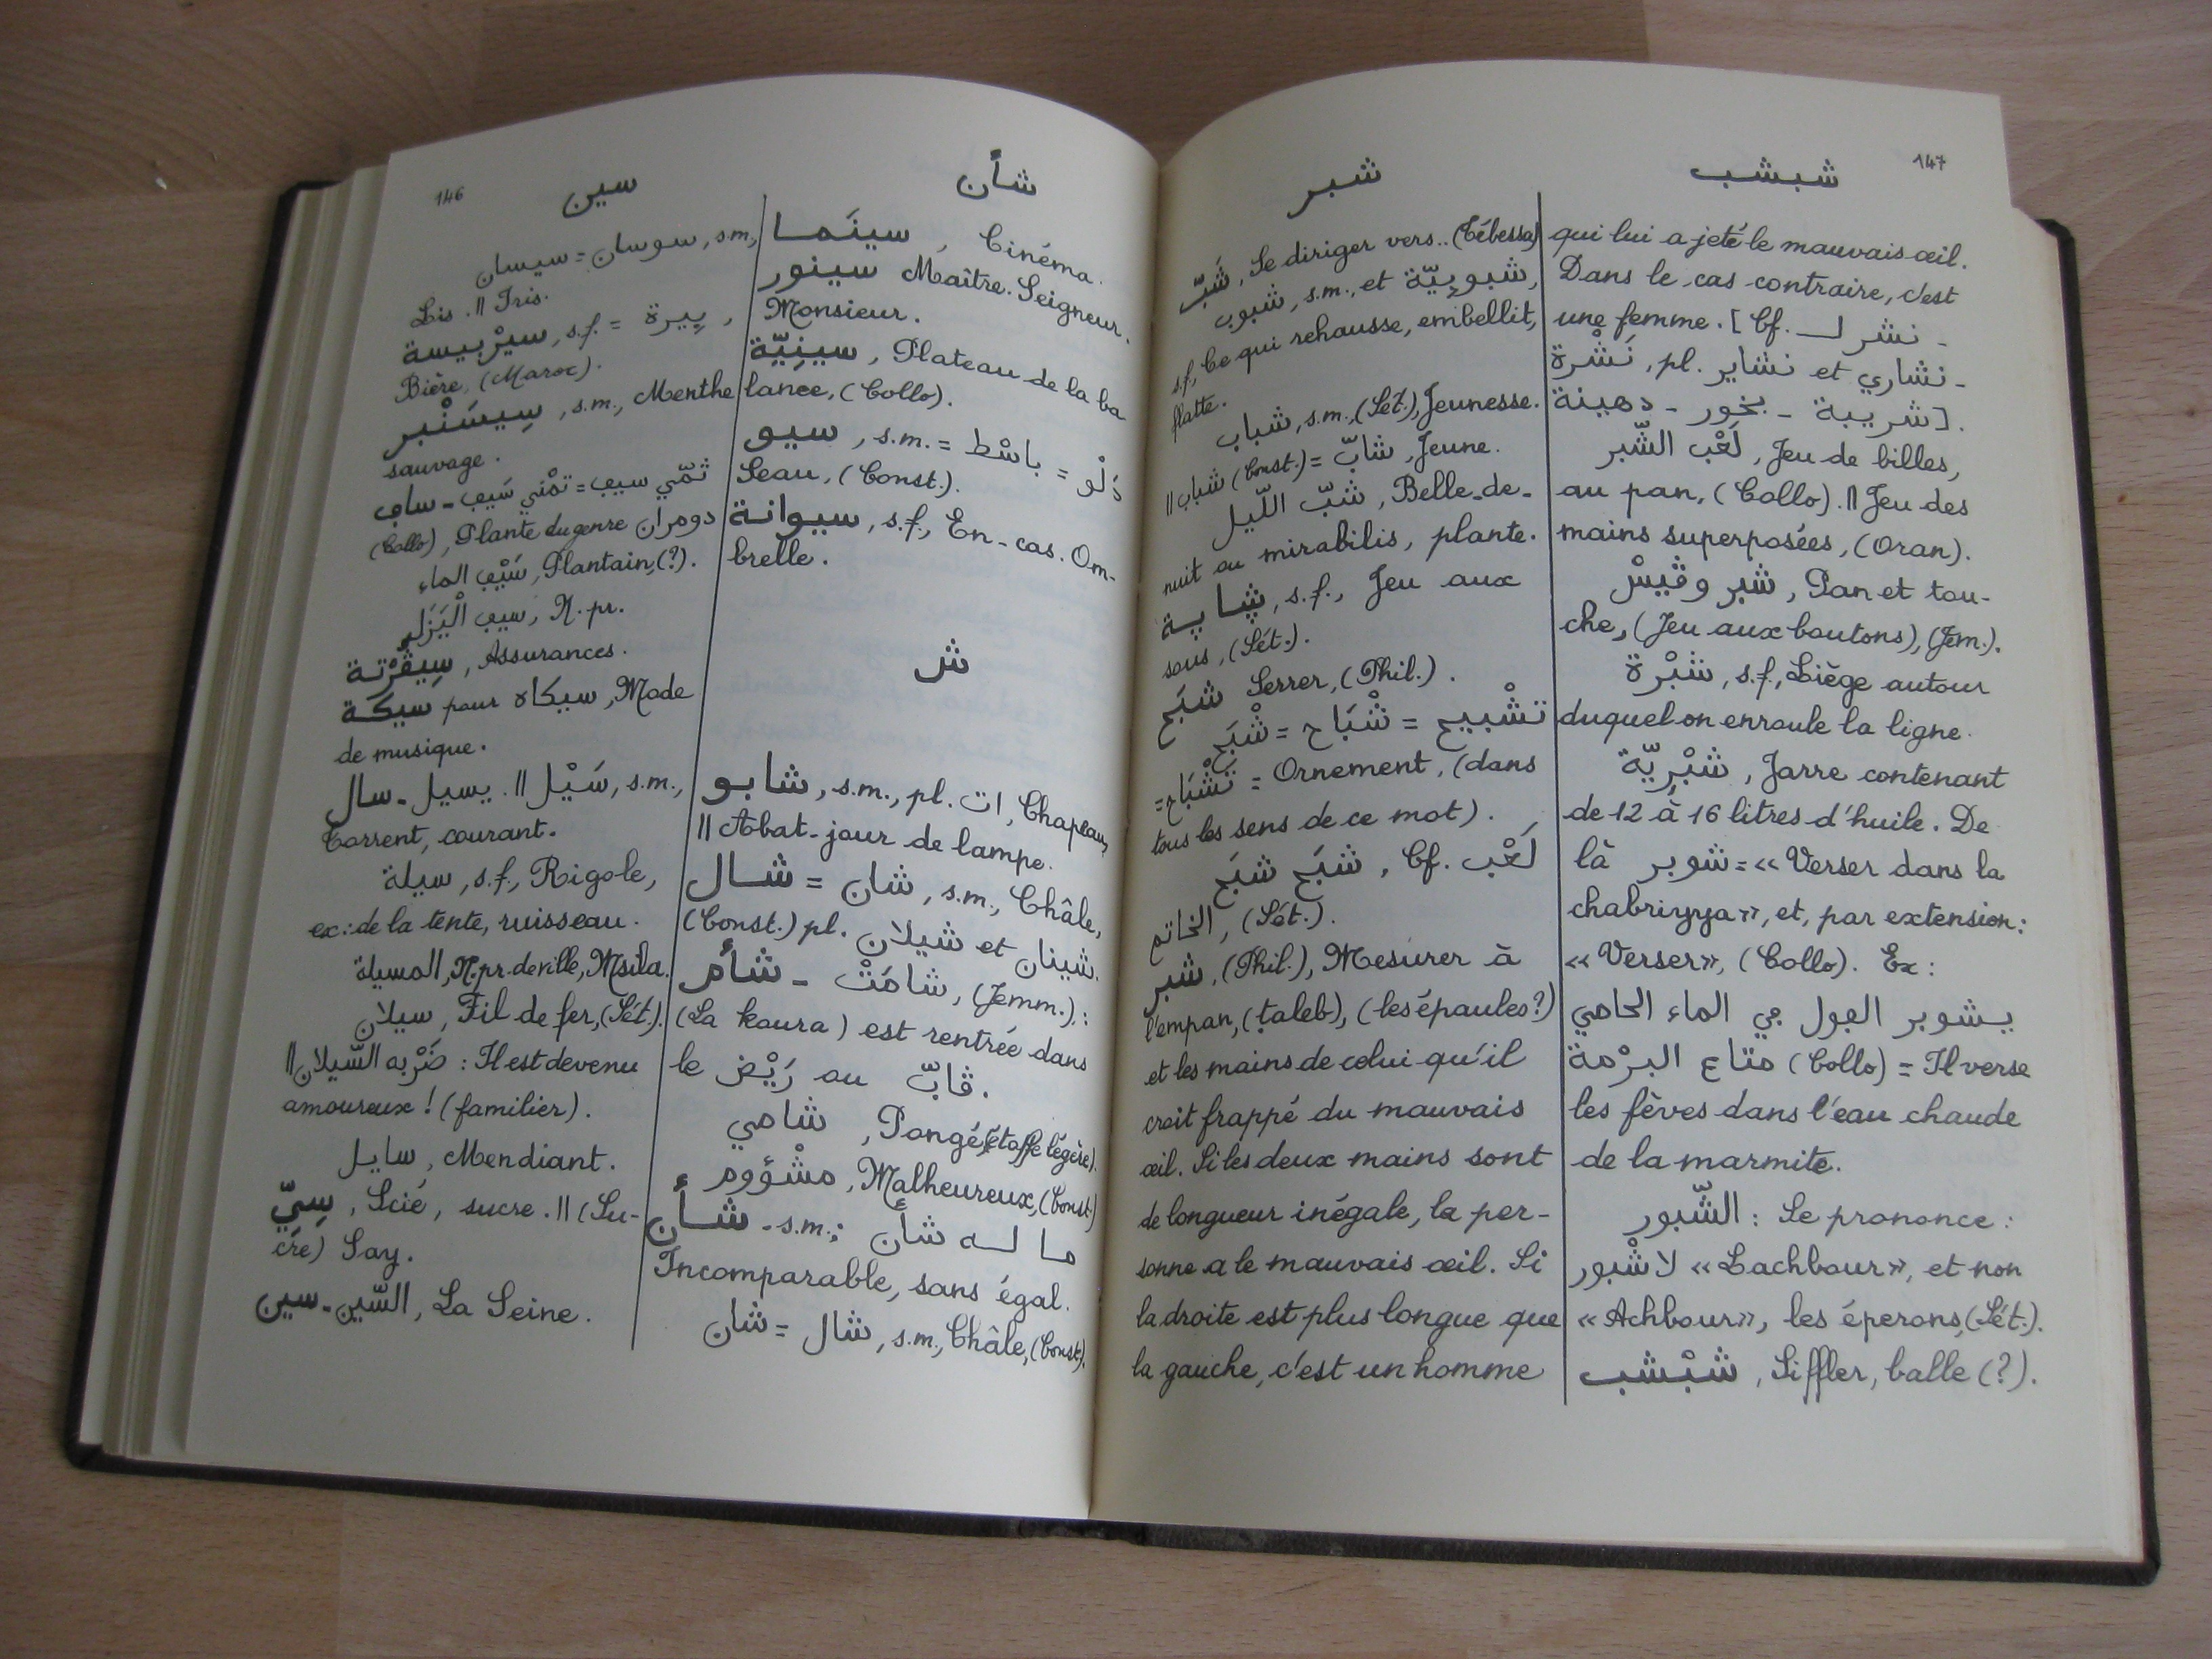 146
سين
شأن
سيسان = سوسان, s.m.,
Lis. || Iris.
سيرْبيسة, s.f. = بيرة ,
Bière, (Maroc).
سِيسَنْبر, s.m., Menthe
sauvage.
ساف - سيف = تمْني سَيف = ثمّي سيف
(Collo), Plante du genre دومران
سَيْف الماء, Plantain, (?).
سيف الْيَزَل, N. pr.
سِيڤُرْتة, Assurances.
سيكة pour سيكاه, Mode
de musique.
سال - يسيل. || سَيْل, s.m.,
Torrent, courant.
سيلة, s.f., Rigole,
ex: de la tente, ruisseau.
المسيلة, N. pr. de ville, Msila.
سيلان, Fil de fer, (Sét.).
|| ضَرْبه السّيلان : Il est devenu
amoureux ! (familier).
سايل, Mendiant.
سِيّ, Scié, sucre. || (Su-
cre) Say.
سين - السّين, La Seine.
سينَما , Cinéma.
سينور Maître. Seigneur.
Monsieur.
سينِيّة, Plateau de la ba
lance, (Collo).
سيو, s.m. = باسْط = دَلْو
Seau, (Const.).
سيوانة, s.f., En-cas. Om-
brelle.
ش
شابو, s.m., pl. ات, Chapeau,
|| Abat-jour de lampe.
شال = شان, s.m., Châle,
(Const.) pl. شيلان et شينان.
شأم - شامَتْ, (Jemm.) :
(La koura) est rentrée dans
le رَيْض ou ڤابّ.
شامي , Pongé, (étoffe légère).
مشْؤوم, Malheureux, (Const.)
شأن - s.m.; ما له شأن
Incomparable, sans égal.
شان = شال, s.m., Châle, (Const.).
شبر
شبشب
147
شَبّ, Se diriger vers.. (Tébessa)
شبوب, s.m., et شبوبيّة,
s.f., Ce qui rehausse, embellit,
flatte.
شباب, s.m., (Sét.), Jeunesse.
|| شباب (Const.) = شابّ, Jeune.
شَبّ اللّيل, Belle-de-
nuit ou mirabilis, plante.
شابية, s.f., Jeu aux
sous, (Sét.).
شبَح Serrer, (Phil.).
شْبَح = شْبَاح = تشْبيح
= تَشْبَاح = Ornement, (dans
tous les sens de ce mot).
شبَح شبَح , Cf. لَعْب
الخاتم, (Sét.).
شبر, (Phil.), Mesurer à
l'empan, (taleb), (les épaules?)
et les mains de celui qu'il
croit frappé du mauvais
œil. Si les deux mains sont
de longueur inégale, la per-
sonne a le mauvais œil. Si
la droite est plus longue que
la gauche, c'est un homme
qui lui a jeté le mauvais œil.
Dans le cas contraire, c'est
une femme. [Cf. نشر لـ -
نَشْرة, pl. نشاير et نشاري -
شريبة - بخور - دهينة].
لَعْب الشّبر, Jeu de billes,
au pan, (Collo). || Jeu des
mains superposées, (Oran).
شبر وڤيسْ, Pan et tou-
che, (Jeu aux boutons), (Jem.).
شبْرة, s.f., Liège autour
duquel on enroule la ligne.
شبْريّة, Jarre contenant
de 12 à 16 litres d'huile. De
là شوبر = « Verser dans la
chabriyya », et, par extension:
« Verser », (Collo). Ex :
يشوبر الفول في الماء الحامي
متاع البرْمة (Collo) = Il verse
les fèves dans l'eau chaude
de la marmite.
الشّبور : Se prononce :
لاشْبور « Lachbour », et non
« Achbour », les éperons, (Sét.).
شبْشب, Siffler, balle (?).